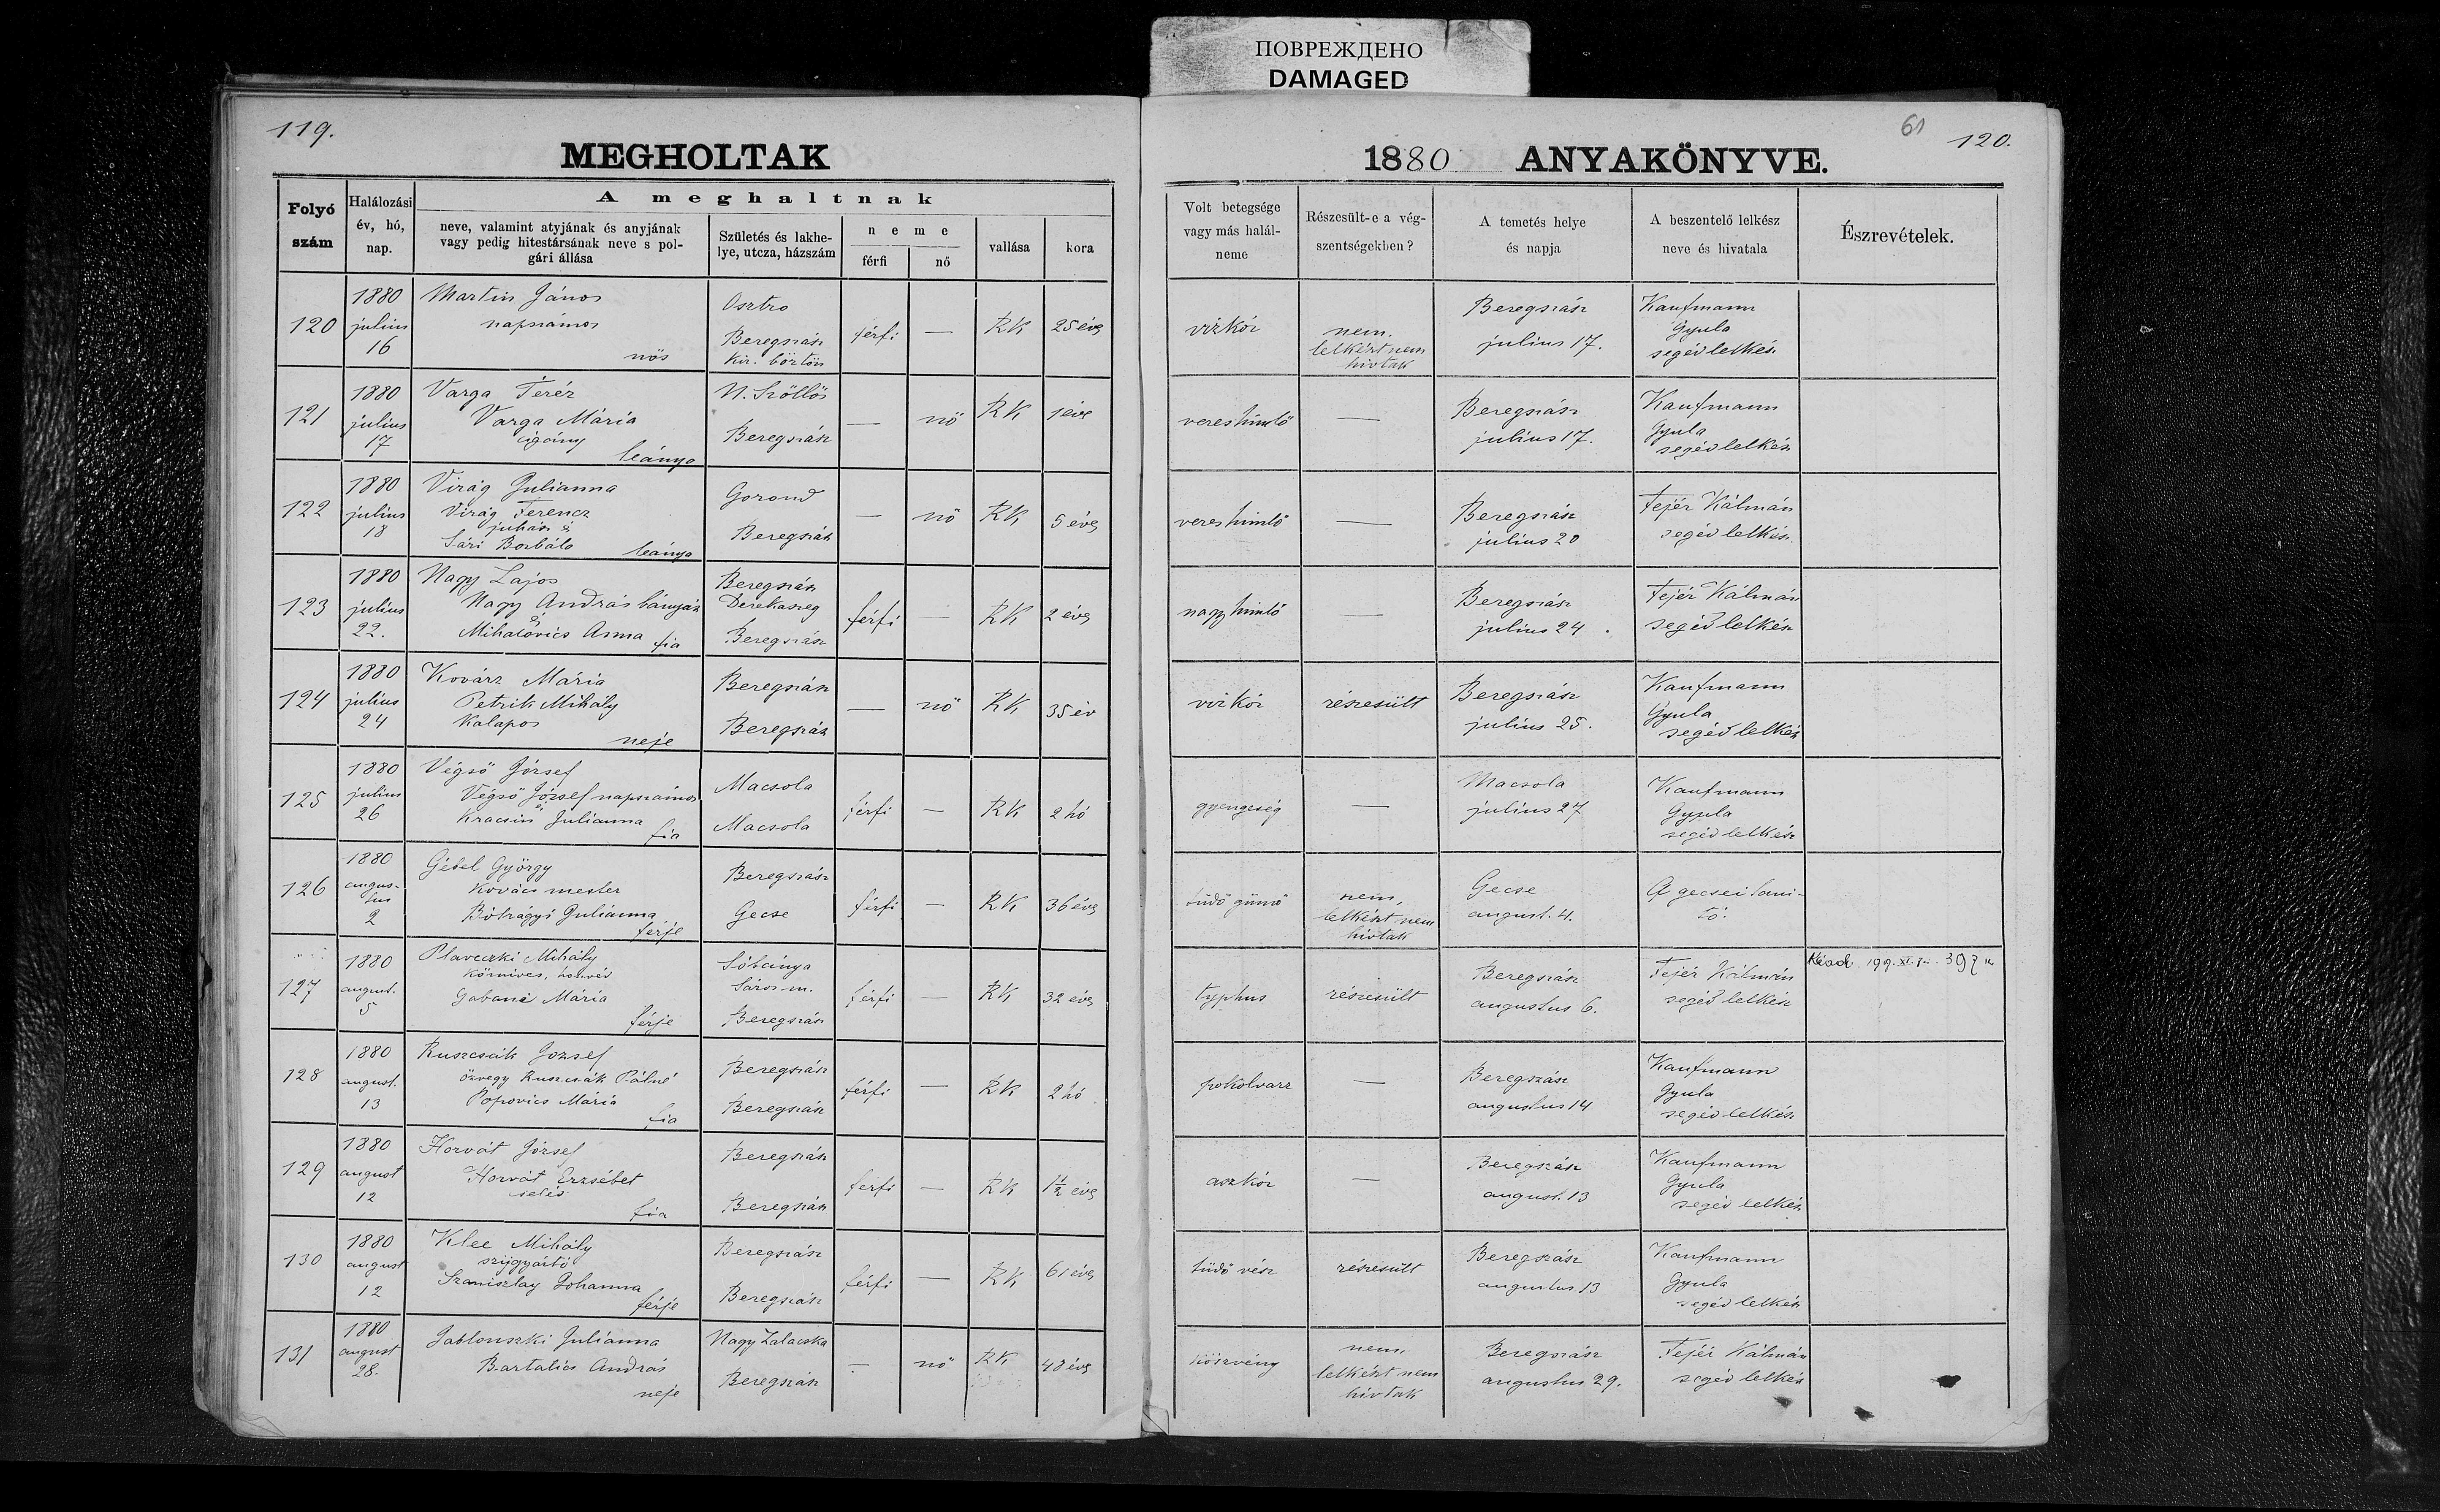 ПОВРЕЖДЕНО
DAMAGED
119.
MEGHOLTAK
Folyó szám
Halálozási év, hó, nap.
A meghaltnak
neve, valamint atyjának és anyjának vagy pedig hitestársának neve s polgári állása
Születés és lakhelye, utcza, házszám
neme
férfi
nő
vallása
kora
61
120.
1880 ANYAKÖNYVE.
Volt betegsége vagy más halálneme
Részesült-e a végszentségekben?
A temetés helye és napja
A beszentelő lelkész neve és hivatala
Észrevételek.
120 1880 julius 16 Martin János napszámos nős Osztro Beregszász kir. börtön férfi — RK 25 éves vizkór nem. lelkészt nem hivtak Beregszász julius 17. Kaufmann Gyula segédlelkész
121 1880 julius 17 Varga Teréz Varga Mária cigány leánya N. Szőllős Beregszász — nő RK 1 éve vereshimlő — Beregszász julius 17. Kaufmann Gyula segédlelkész
122 1880 julius 18 Virág Julianna Virág Ferencz juhász é Sári Borbála leánya Gorond Beregszász — nő RK 5 éves vereshimlő — Beregszász julius 20 Fejér Kálmán segédlelkész.
123 1880 julius 22. Nagy Lajos Nagy András bányász és Mihalovics Anna fia Beregszász Derekaszeg Beregszász férfi — RK 2 éves nagyhimlő — Beregszász julius 24. Fejér Kálmán segédlelkész
124 1880 julius 24 Kovárz Mária Petrik Mihály Kalapos neje Beregszász Beregszász — nő RK 35 év vizkór részesült Beregszász julius 25. Kaufmann Gyula segédlelkész
125 1880 julius 26 Végső József Végső József napszámos és Kracsin Julianna fia Macsola Macsola férfi — RK 2 hó gyengeség — Macsola julius 27 Kaufmann Gyula segédlelkész
126 1880 augustus 2 Gébel György Kovács mester Bótrágyi Julianna férje Beregszász Gecse férfi — RK 36 éves tüdő gümő nem, lelkészt nem hivtak Gecse august. 4. A gecsei tanító.
127 1880 august. 5 Plaveczki Mihály Kőmives, honvéd Mária férje Sóbánya Sáros m. Beregszász férfi — RK 32 éves typhus részesült Beregszász augustus 6. Fejér Kálmán segédlelkész Kiad.
128 1880 august. 13 Ruszcsák Jozsef özvegy Ruszcsák Pálné Popovics Mária fia Beregszász Beregszász férfi — RK 2 hó pokolvarz — Beregszász augustus 14 Kaufmann Gyula segédlelkész
129 1880 august 12 Horvát József Horvát Erzsébet fia Beregszász Beregszász férfi — RK 1½ éves aszkór — Beregszász august. 13 Kaufmann Gyula segédlelkész
130 1880 august 12 Klee Mihály szijgyártó Szaniszlay Johanna férje Beregszász Beregszász férfi — RK 61 éves tüdő vész részesült Beregszász augustus 13 Kaufmann Gyula segédlelkész
131 1880 august 28. Jablonszki Julianna Bartalics András neje Nagy Zalacska Beregszász — nő RK 48 éves köszvény nem. lelkészt nem hivtak Beregszász augustus 29. Fejér Kálmán segédlelkész